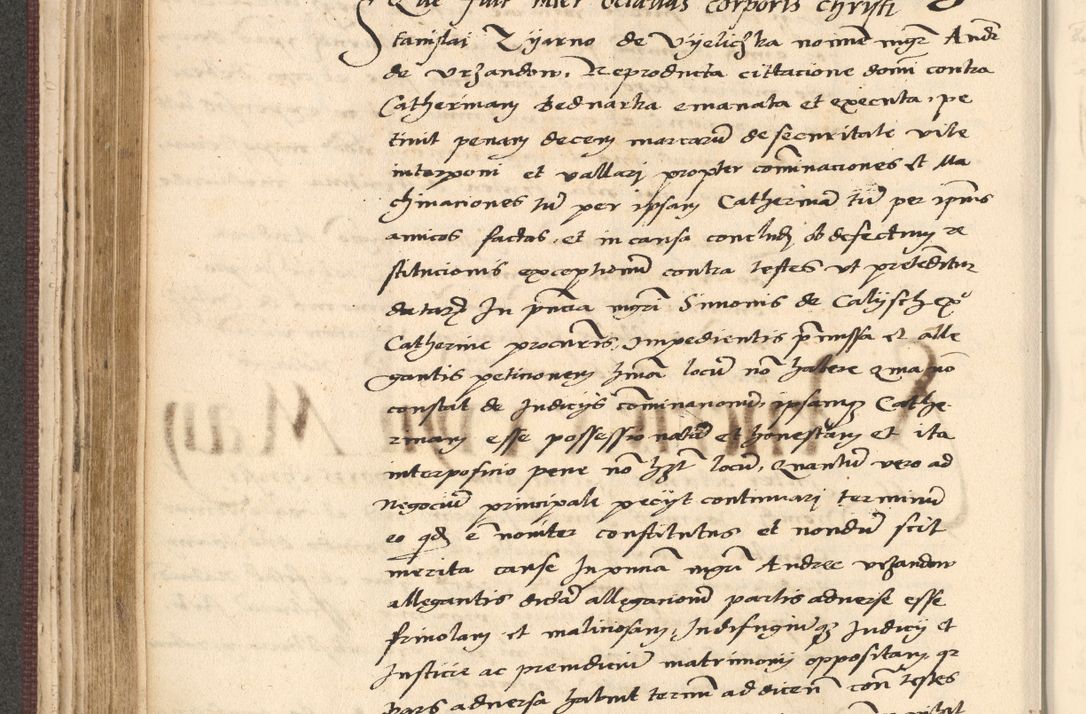 Que fuit inter octavas corporis Christi
Stanislai Zyarno de Vyeliczka noīne mgrī Andr
de Vrzandow. Reproducta cittacione domī contra
Catherinam Bednarka emanata et executa, pe
tiuit penam decem marcarū de securitate vite
interponi et vallari propter cōminaciones et Ma
chinaciones tū per ipsam Catherinā tū per ipius
amicos factas, et in causa concludi ob defectum re
stitucionis exceptionū contra testes vt pretēditur
datarū In pn̄cia mgrī Simonis de Calysch
Catherine procurīs, impedientis p̄missa et alle
gantis peticionem hmōi locū nō habere quia nō
constat de Indiciis cōminacionū, ipsamqz Cathe
rinam esse possessionatā et honestam et ita
interposicio pene nō hzt locū, Quantū vero ad
Negociū principale peciit continuari terminū
eo qd ē nouiter constitutus et nondū scit
merita cause In pn̄cia mgrī Andree vrzandow
allegantis dictā allegacionē partis aduerse esse
friuolam et maliciosam, Indifugiūqz Iudicij et
Iusticie ac preiudiciū matrimonij oppositam, qr
pars aduersa habuit termīn ad dicen̄ con̄ testes